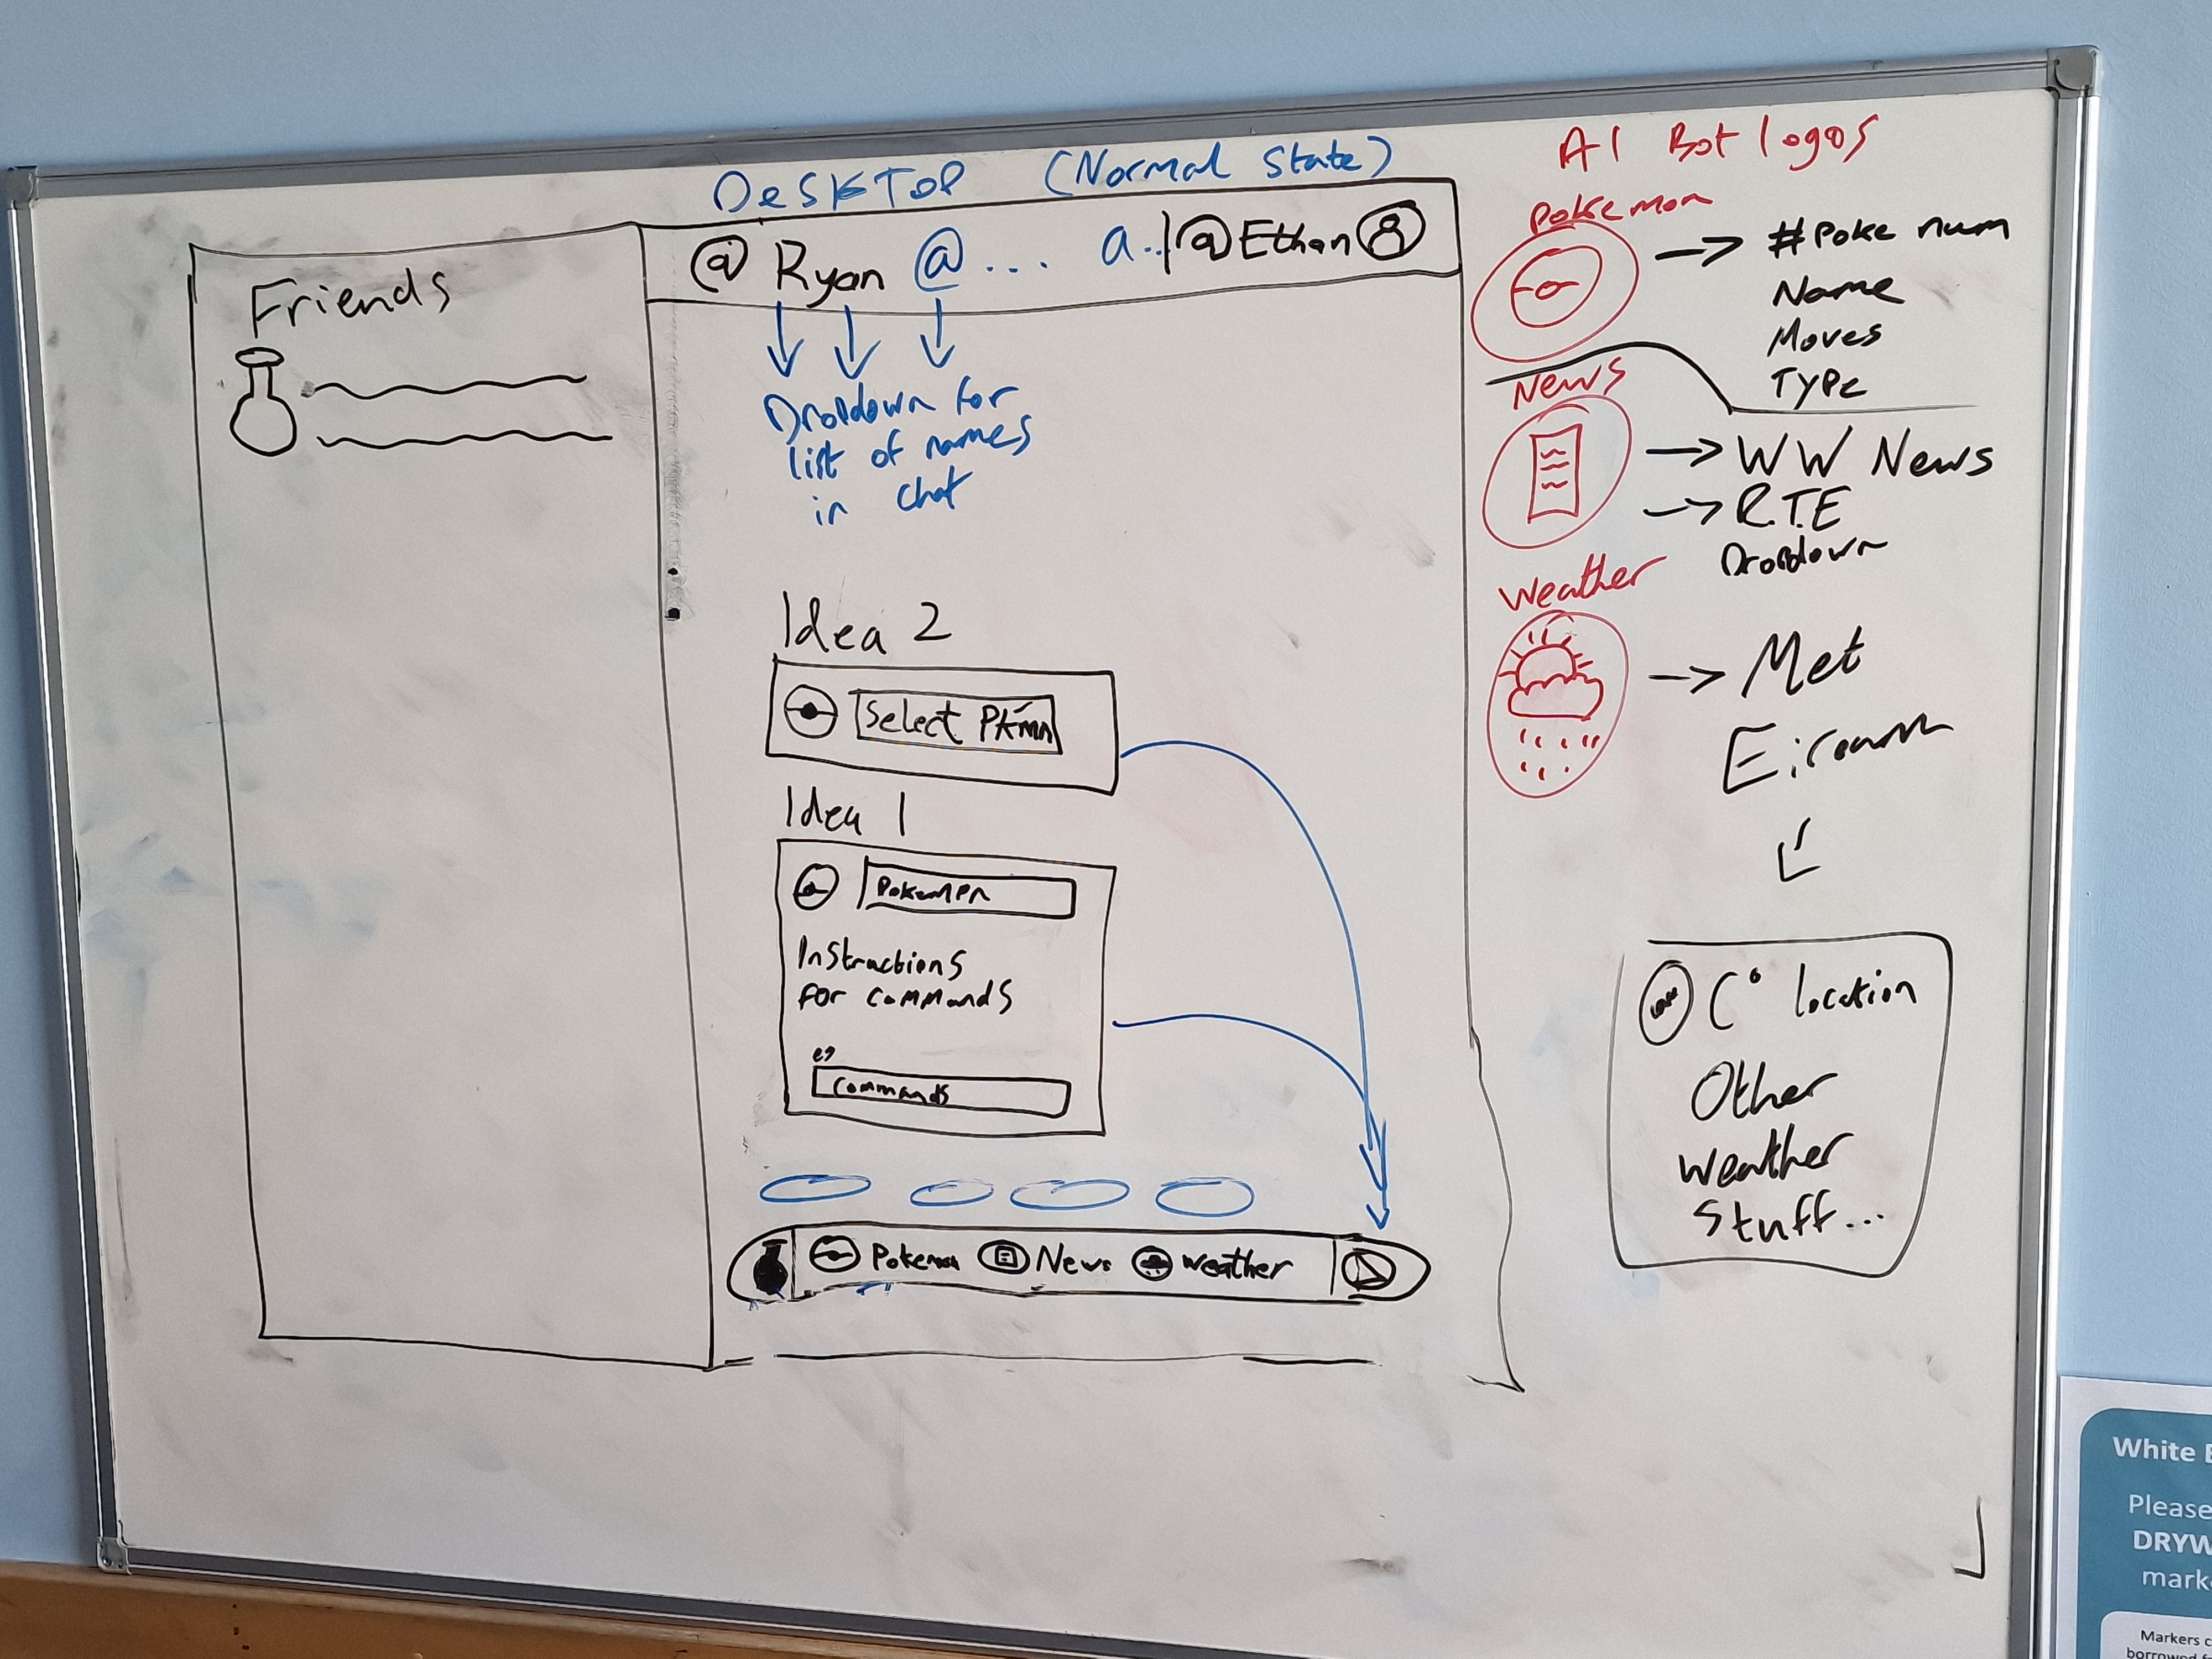 DESKTOP (Normal State)
@ Ryan @... a.. @Ethan
Friends
Dropdown for
list of names
in chat
Idea 2
Select PKmn
Idea 1
Pokemon
Instructions
for commands
eg
Commands
Pokemon News Weather
AI Bot logos
Pokemon
#Poke num
Name
Moves
Type
News
WW News
R.T.E
Dropdown
Weather
Met
C° location
Other
weather
stuff...
White
Please
DRYW
mark
Markers c
borrowed